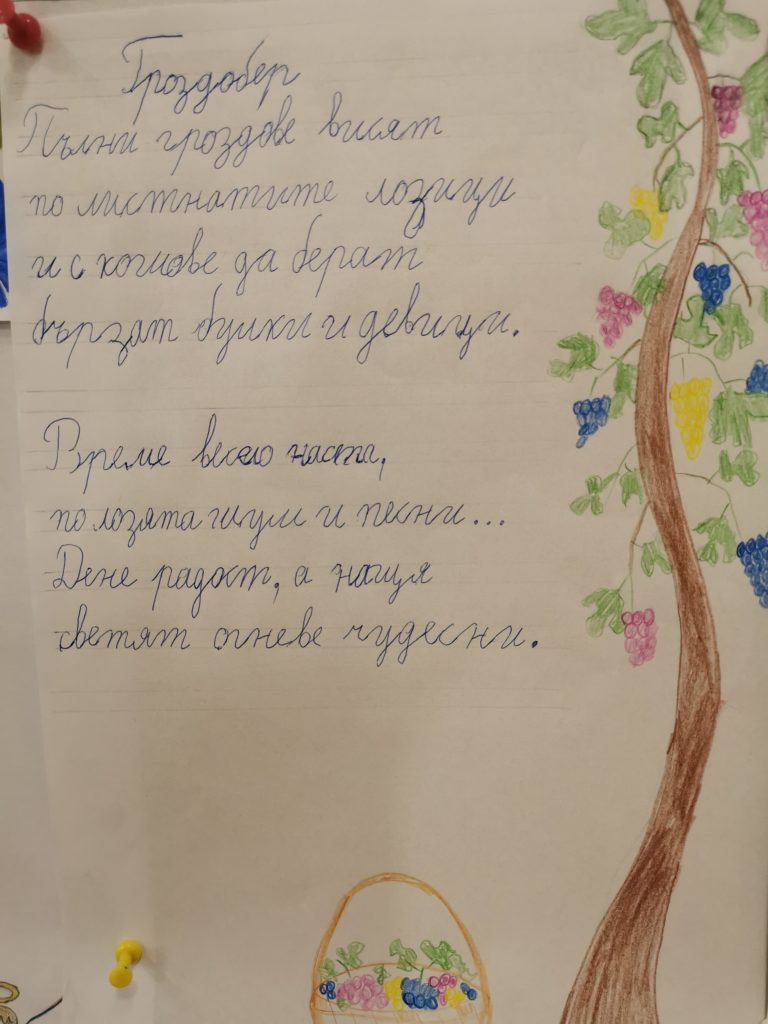 Гроздобер
Пълни гроздове висят
по листнатите лозици
и с кошове да берат
бързат булки и девици.
Време весело наста,
по лозята шум и песни...
Дене радост, а нащя
светят огневе чудесни.